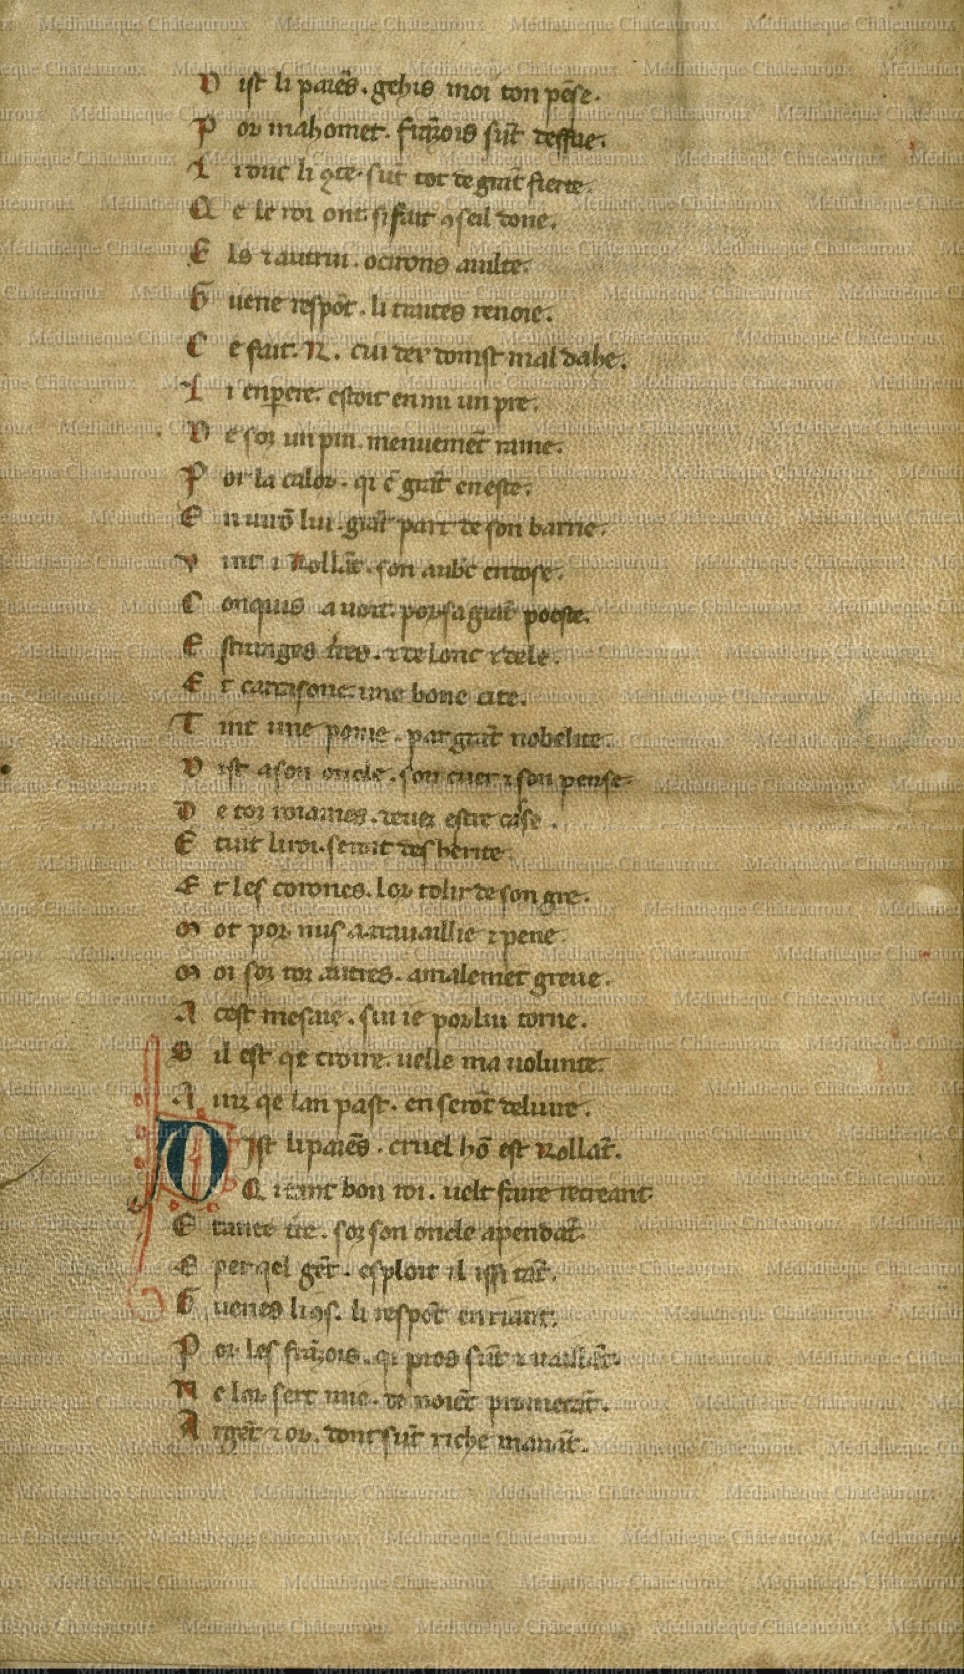 D ist li paiēs . gehis moi ton pēse .
P or mahomet . frāzois sūt desfae .
L i duc li ꝯte . sūt tot de grāt fierte .
Q e le roi ont . si fait ꝯseil done .
E ls ⁊ autrui . ocirons a uilte .
G uene respōt . li traites renoie .
C e fait . R . cui dex donist mal dahe .
L i enꝑere . estoit en mi un pre .
D e soz un pin . menuemēt rame .
P or la calor . qi ē grāt en este .
E nuirō lui . grāt part de son barne .
V int i Rollāt . son aubc endose .
C onquis auoit . por sa grāt poeste .
E stranges t'res . ⁊ de lonc ⁊ de le .
E t carcasone . une bone cite .
T int une pome . par grāt nobelite .
D ist a son oncle . son cuer ⁊ son pense
D e toz roiames . deuez estre case .
E tuit li roi . seront desherite .
E t les corones . lor tolir de son gre .
M ot por nus a trauaillie ⁊ pene .
M oi sor toz autres . a malemēt greue .
A cest mesaie . sui ie por lui torne .
S il est qe croire . uelle ma uolunte .
A inz qe lan past . en serōt deliure .
D Ist li paiēs . cruel hō est Rollāt .
Q i tant bon roi . uelt faire recreant
E tante t're . soz son oncle apendāt .
E per qel gēt . esploit il issi tāt .
G uenes li ꝯs . li respōt en riant .
P or les frāzois . qi pros sūt ⁊ uaillāt .
N e lor sert mie . de noiēt prometāt .
A rgēt ⁊ or . dont sūt riche manāt .
Médiathèque Châteauroux